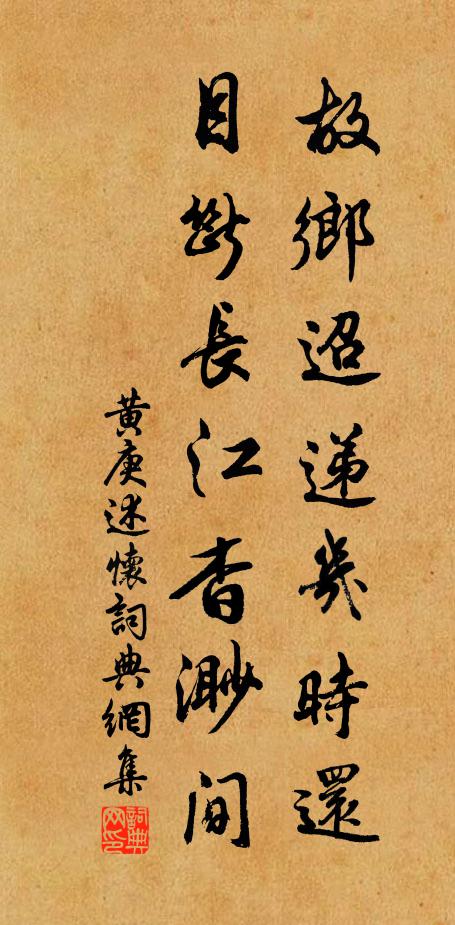 故鄉迢递幾時還
目断長江杳渺间
黄庚述懷詞典網集
詞典网印